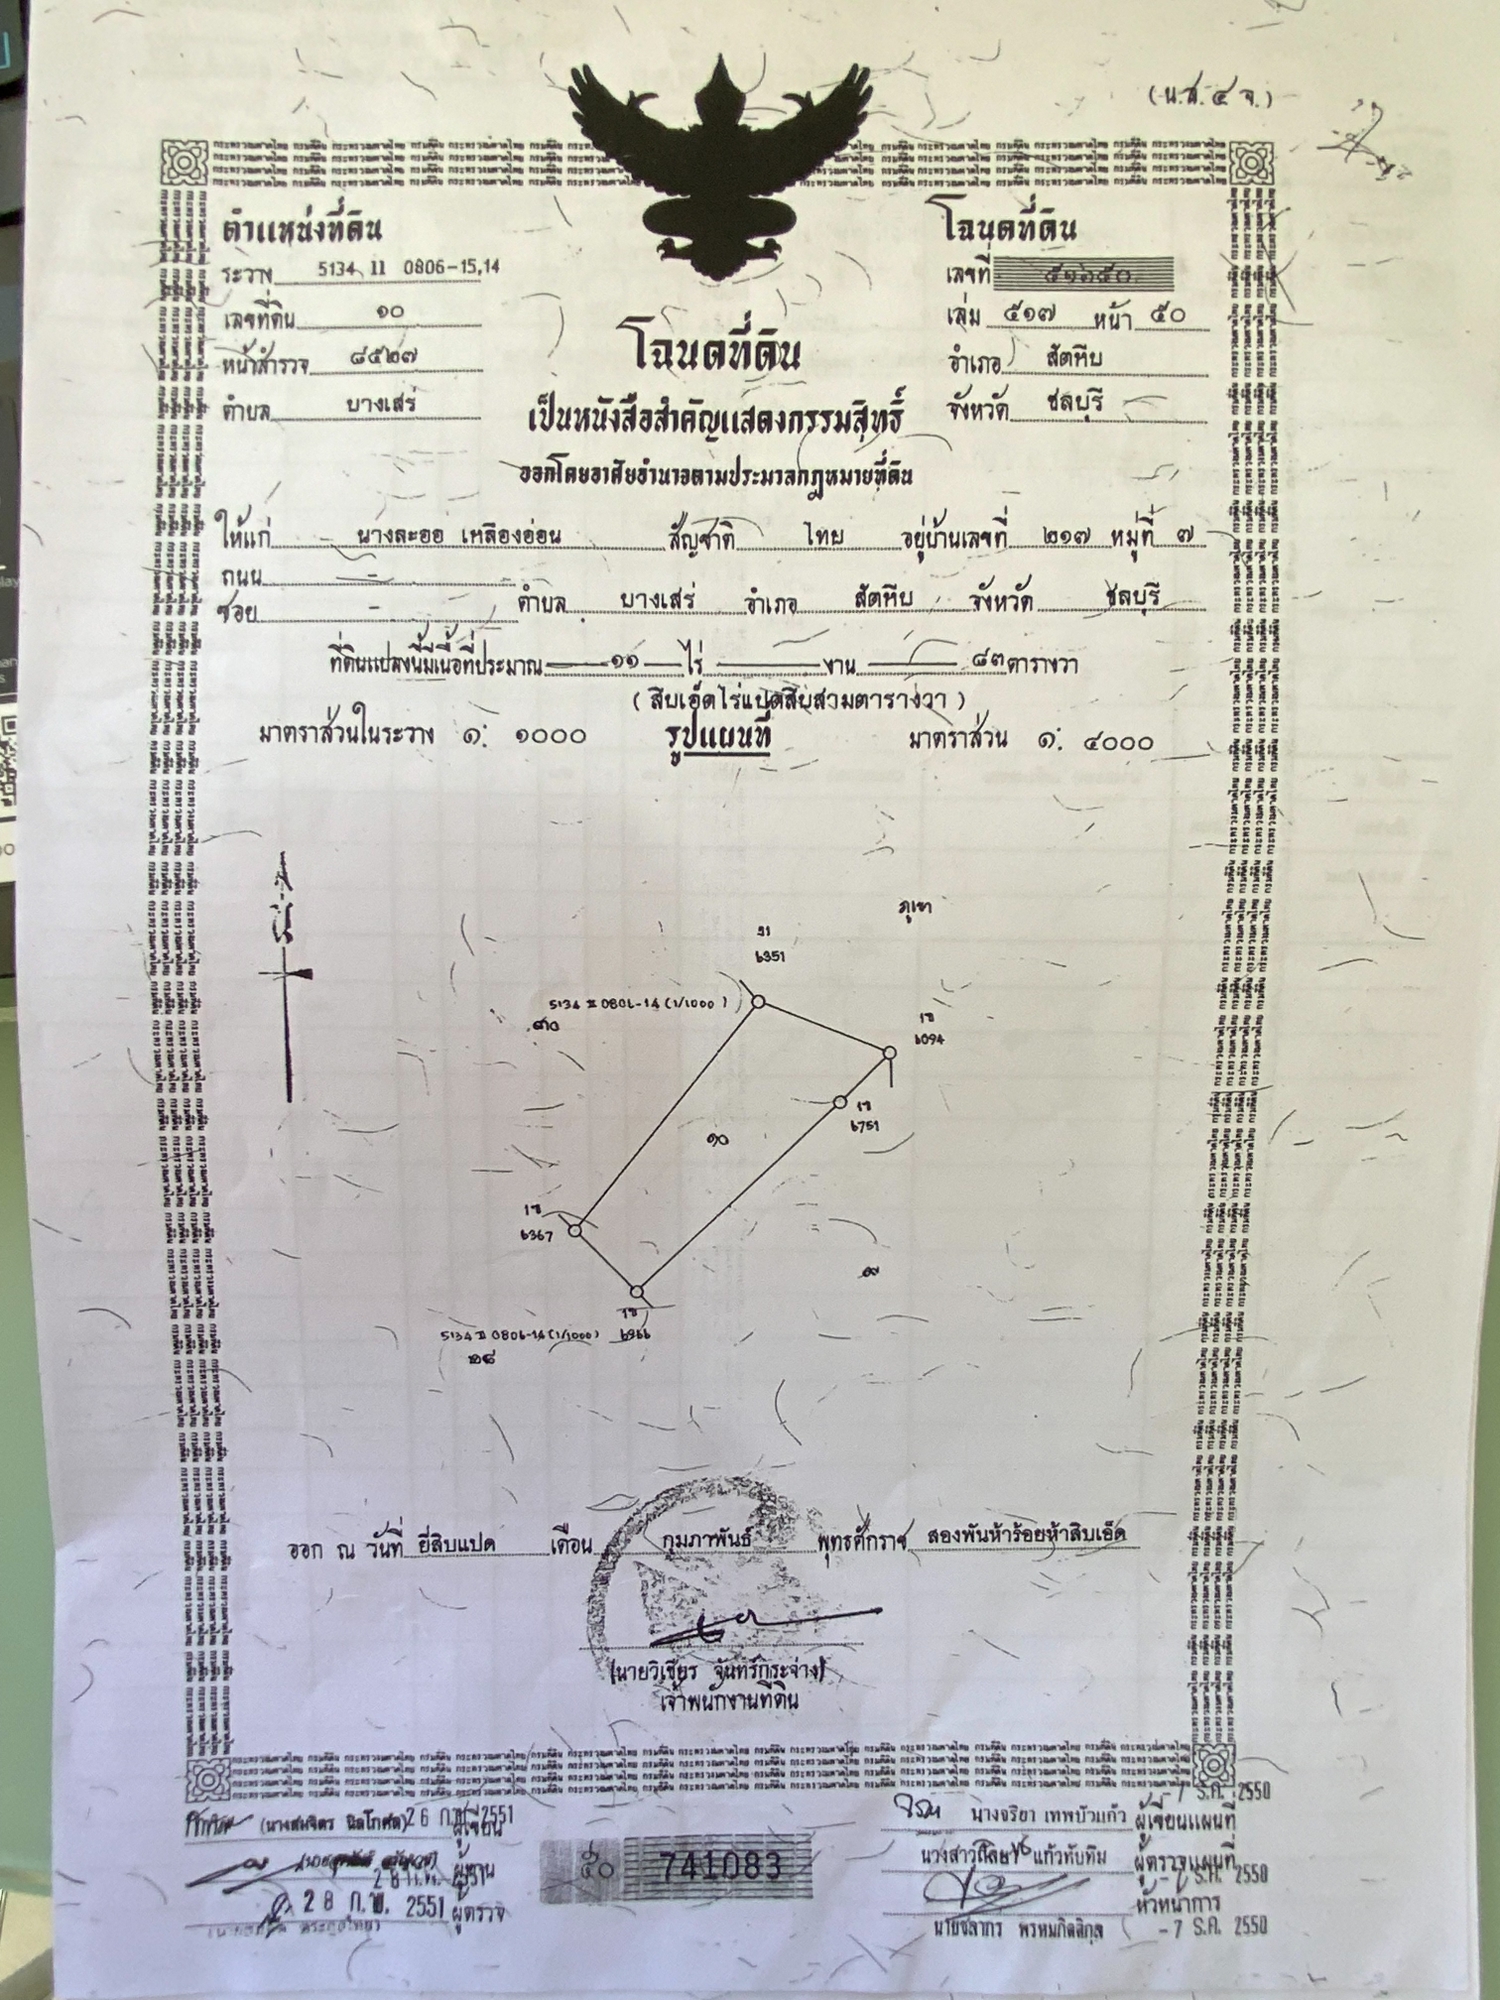 (น.ส. ๔ จ.)
ตำแหน่งที่ดิน
ระวาง 5134 II 0806-15,14
เลขที่ดิน ๑๐
หน้าสำรวจ ๘๕๒๗
ตำบล บางเสร่
โฉนดที่ดิน
เลขที่
เล่ม ๕๑๗ หน้า ๕๐
อำเภอ สัตหีบ
จังหวัด ชลบุรี
โฉนดที่ดิน
เป็นหนังสือสำคัญแสดงกรรมสิทธิ์
ออกโดยอาศัยอำนาจตามประมวลกฎหมายที่ดิน
ให้แก่ นางละออ เหลืองอ่อน สัญชาติ ไทย อยู่บ้านเลขที่ ๒๑๗ หมู่ที่ ๗
ถนน -
ซอย - ตำบล บางเสร่ อำเภอ สัตหีบ จังหวัด ชลบุรี
ที่ดินแปลงนี้มีเนื้อที่ประมาณ ๑๑ ไร่ งาน ๘๓ ตารางวา
(สิบเอ็ดไร่แปดสิบสามตารางวา)
มาตราส่วนในระวาง ๑: ๑๐๐๐ รูปแผนที่ มาตราส่วน ๑: ๔๐๐๐
ภูเขา
6351
5134 II 0806-14 (1/1000)
6094
6751
๑๐
6367
5134 II 0806-14 (1/1000)
๒๘
ออก ณ วันที่ ยี่สิบแปด เดือน กุมภาพันธ์ พุทธศักราช สองพันห้าร้อยห้าสิบเอ็ด
(นายวิเชียร จันทร์กระจ่าง)
เจ้าพนักงานที่ดิน
26 ก.พ. 2551 ผู้เขียน
28 ก.พ. 2551 ผู้ทาน
28 ก.พ. 2551 ผู้ตรวจ
๕๐ 741083
-7 ธ.ค. 2550
นางจริยา เทพบัวแก้ว ผู้เขียนแผนที่
แก้วทับทิม ผู้ตรวจแผนที่
-7 ธ.ค. 2550
หัวหน้าการ
นายชลากร พรหมกิตติกุล -7 ธ.ค. 2550